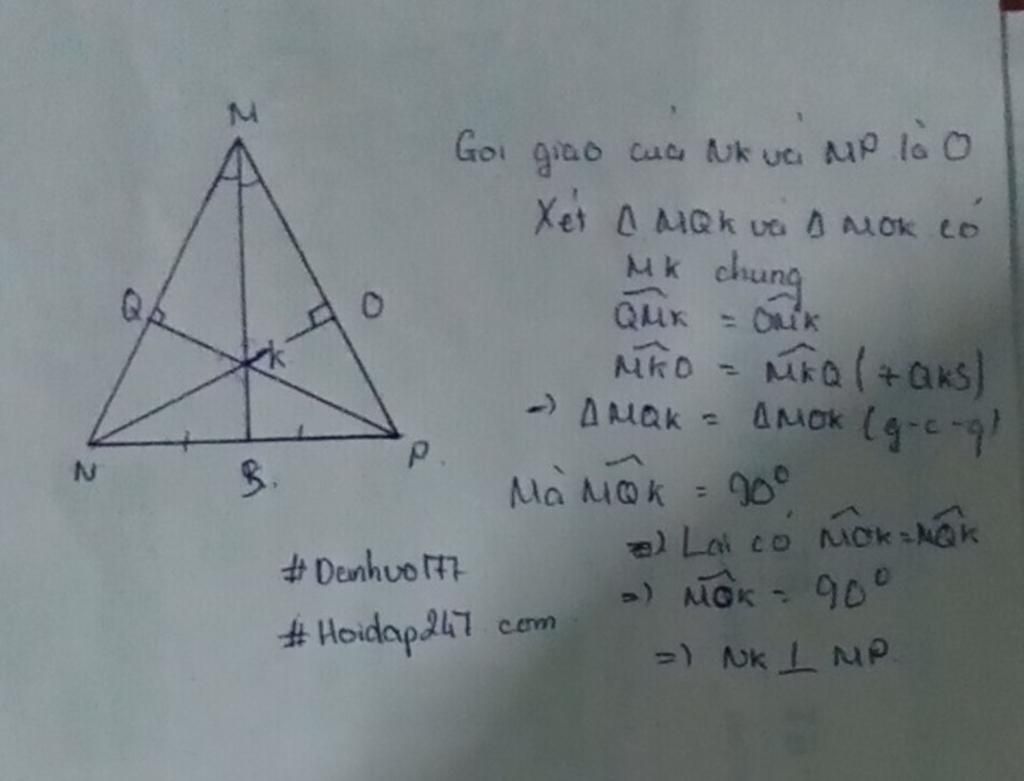 M
Gọi giao của NK và MP là O
Xét Δ MQK và Δ MOK có
MK chung
Q̂MK = ÔMK
M̂KO = M̂KQ (+QKS)
=) Δ MQK = Δ MOK (g-c-g)
Mà M̂QK = 90°
=) Lại có M̂OK = M̂QK
=) M̂OK = 90°
=) NK ⊥ MP
Q
O
K
N
P.
#Hoidap247 com